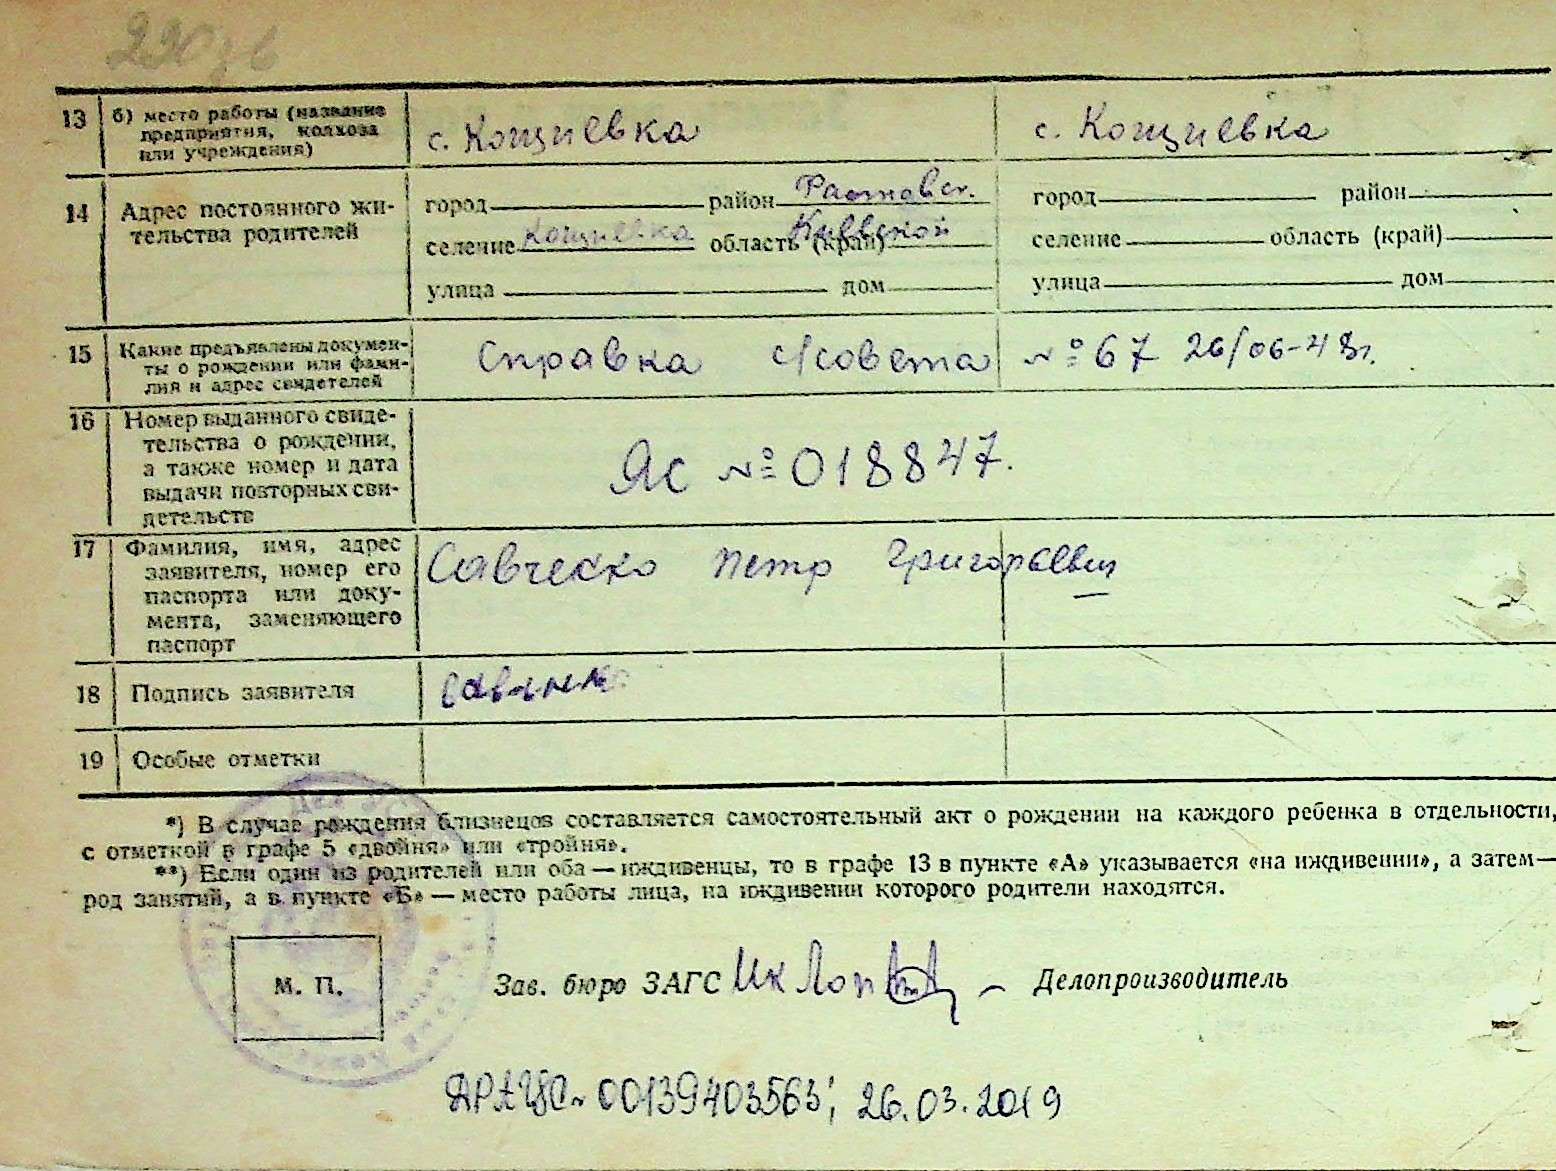 13 б) место работы (название
предприятия, колхоза
или учреждения)
с. Кощиевка
с. Кощиевка
14 Адрес постоянного жи-
тельства родителей
город район Фастовск.
селение Кощиевка область (край) Киевской
улица дом
город район
селение область (край)
улица дом
15 Какие предъявлены докумен-
ты о рождении или фами-
лия и адрес свидетелей
Справка с/совета № 67 26/06-48г.
16 Номер выданного свиде-
тельства о рождении,
а также номер и дата
выдачи повторных сви-
детельств
ЯС № 018847.
17 Фамилия, имя, адрес
заявителя, номер его
паспорта или доку-
мента, заменяющего
паспорт
Савченко Петр Григорьевич
18 Подпись заявителя
19 Особые отметки
*) В случае рождения близнецов составляется самостоятельный акт о рождении на каждого ребенка в отдельности,
с отметкой в графе 5 «двойня» или «тройня».
**) Если один из родителей или оба — иждивенцы, то в графе 13 в пункте «А» указывается «на иждивении», а затем—
род занятий, а в пункте «Б» — место работы лица, на иждивении которого родители находятся.
М. П.
Зав. бюро ЗАГС Делопроизводитель
ДРАЦС 00139403563; 26.03.2019